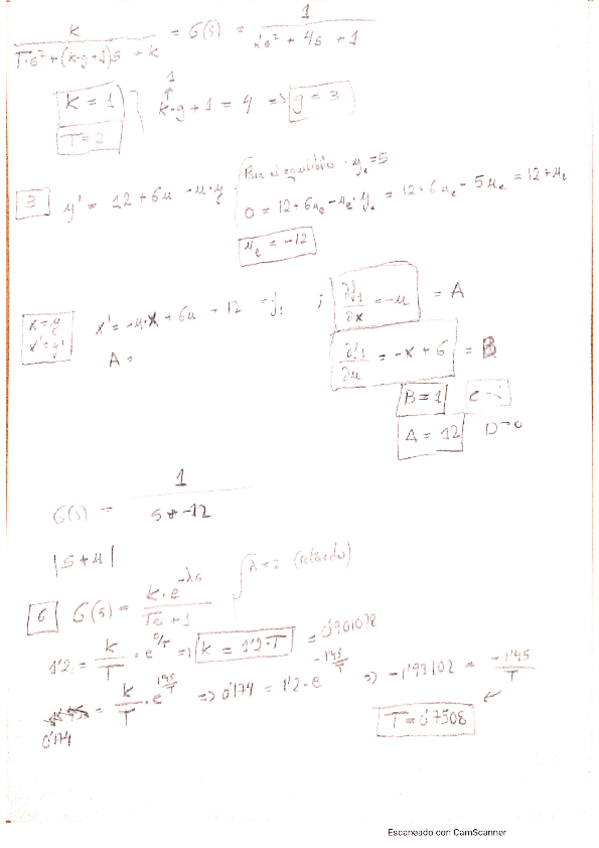 k / (T·s² + (k·g+1)s + k) = G(s) = 1 / (2s² + 4s + 1)
K = 1
T = 2
1
k·g+1 = 4 => g = 3
3 y' = 12 + 6u - u·y
Para el equilibrio · yₑ = 5
0 = 12 + 6uₑ - uₑ·yₑ = 12 + 6uₑ - 5uₑ = 12 + uₑ
uₑ = -12
x = y
x' = y'
x' = -u·x + 6u + 12 = f₁ ; ∂f₁/∂x = -u = A
A =
∂f₁/∂u = -x + 6 = B
B = 1
A = 12 D = 0
G(s) = 1 / (s -12)
|s + u|
6 G(s) = k·e^(-λs) / (Ts + 1) λ = 2 (retardo)
1'2 = k/T · e^(0/T) => k = 1'2·T = 0'901078
= k/T · e^(1'45/T) => 0'174 = 1'2·e^(-1'45/T) => -1'93102 = -1'45/T
0'174
T = 0'7508
Escaneado con CamScanner